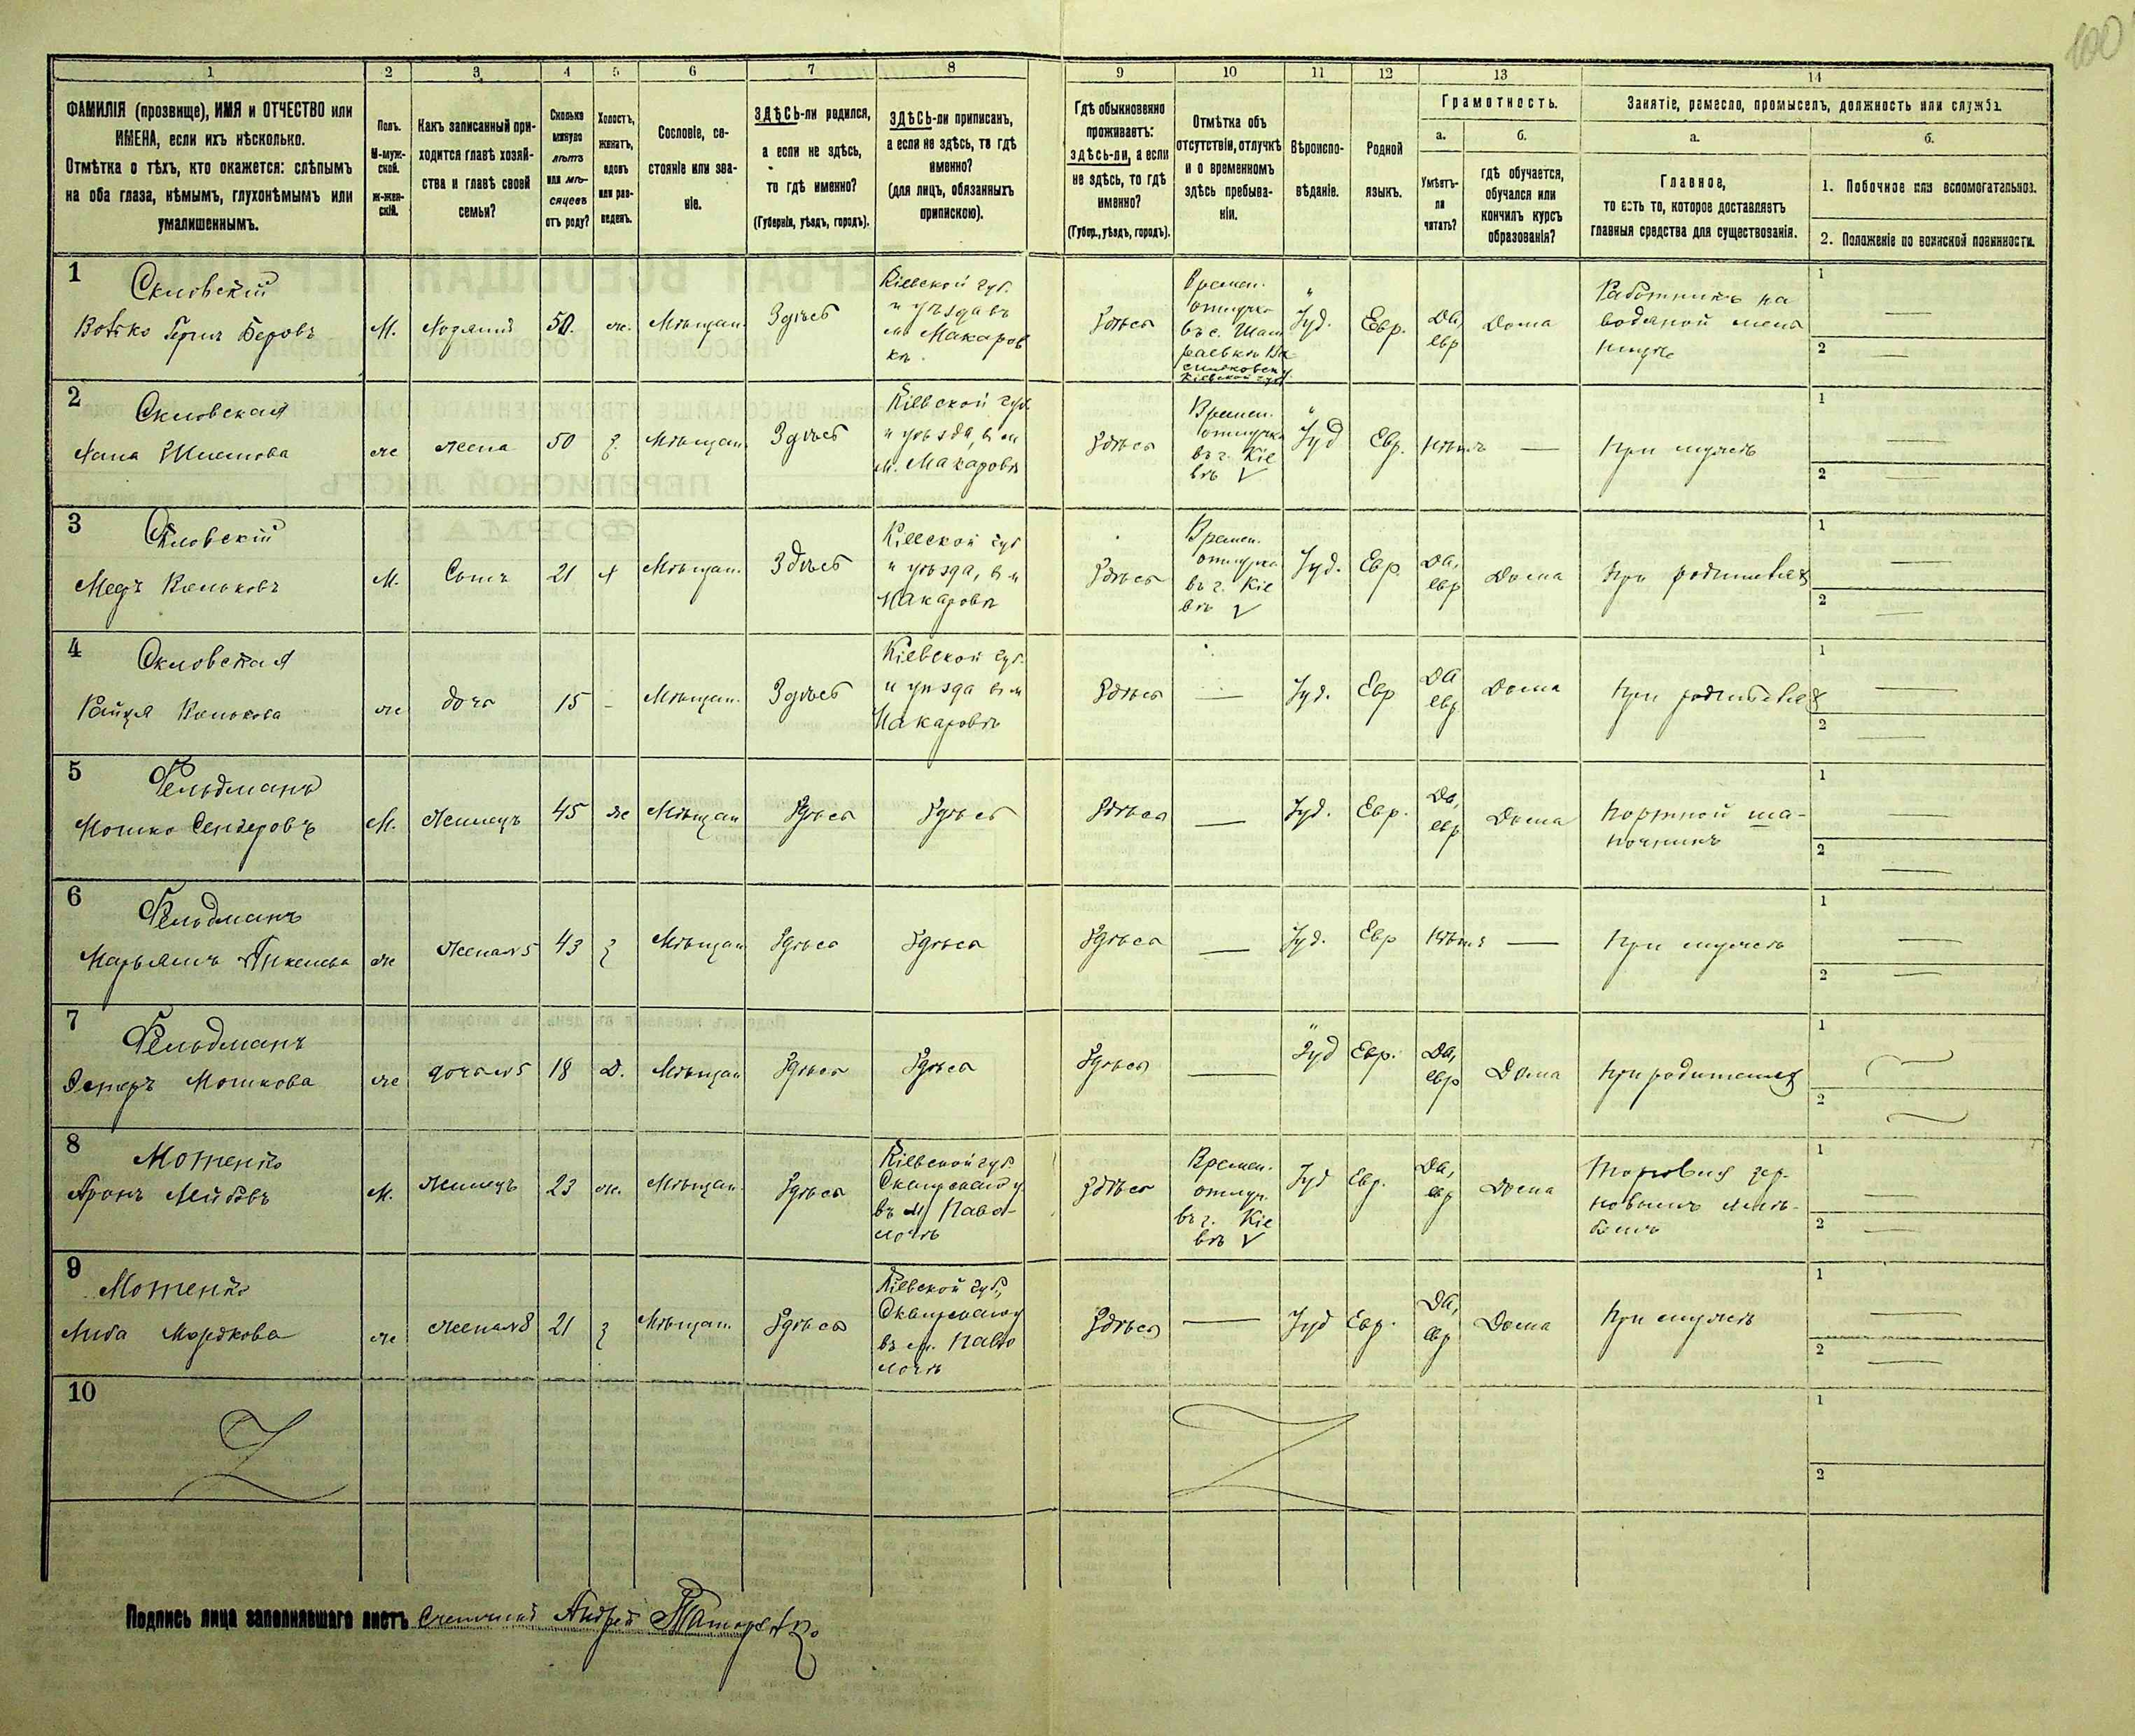 100
1 2 3 4 5 6 7 8 9 10 11 12 13 14
ФАМИЛІЯ (прозвище), ИМЯ и ОТЧЕСТВО или
ИМЕНА, если ихъ нѣсколько.
Отмѣтка о тѣхъ, кто окажется: слѣпымъ
на оба глаза, нѣмымъ, глухонѣмымъ или
умалишеннымъ.
Полъ.
М-муж-
ской.
ж-жен-
скій.
Какъ записанный при-
ходится главѣ хозяй-
ства и главѣ своей
семьи?
Сколько
минуло
лѣтъ
или мѣ-
сяцевъ
отъ роду?
Холостъ,
женатъ,
вдовъ
или раз-
веденъ.
Сословіе, со-
стояніе или зва-
ніе.
ЗДѢСЬ-ли родился,
а если не здѣсь,
то гдѣ именно?
(Губернія, уѣздъ, городъ).
ЗДѢСЬ-ли приписанъ,
а если не здѣсь, то гдѣ
именно?
(для лицъ, обязанныхъ
припискою).
Гдѣ обыкновенно
проживаетъ:
здѣсь-ли, а если
не здѣсь, то гдѣ
именно?
(Губер., уѣздъ, городъ).
Отмѣтка объ
отсутствіи, отлучкѣ
и о временномъ
здѣсь пребыва-
ніи.
Вѣроиспо-
вѣданіе.
Родной
языкъ.
Грамотность.
а.
Умѣетъ-
ли
читать?
б.
гдѣ обучается,
обучался или
кончилъ курсъ
образованія?
Занятіе, ремесло, промыселъ, должность или служба.
а.
Главное,
то есть то, которое доставляетъ
главныя средства для существованія.
б.
1. Побочное или вспомогательное.
2. Положеніе по воинской повинности.
1
Скловскій
Беровъ
М.
50.
Мѣщан.
Здѣсь
Кіевской губ.
и уѣзда въ
м Макаров
кѣ.
Здѣсь
Времен.
отлучка
Іуд.
Евр.
Да,
евр
Дома
Работникъ на
водяной мель
ницѣ
1
2
2
Скловская
же
жена
50
з.
Мѣщан.
Здѣсь
Кіевской губ.
и уѣзда, въ м
м. Макаровѣ
Здѣсь
Времен.
отлучка
въ г. Кіе
вѣ V
Іуд
Евр.
Нѣтъ
При мужѣ
1
2
3
Скловскій
М.
Сынъ
21
Х
Мѣщан.
Здѣсь
Кіевской губ
и уѣзда, въ м
Макаровѣ
Здѣсь
Времен.
отлучка
въ г. Кіе
вѣ V
Іуд.
Евр
Да,
евр
Дома
При родителях
1
2
4
Скловская
же
дочь
15
Мѣщан.
Здѣсь
Кіевской губ.
и уѣзда въ м
Макаровѣ
Здѣсь
Іуд.
Евр
Да
евр
Дома
При родителях
1
2
5
Фельдманъ
Мошко Сендеровъ
М.
Жилецъ
45
же
Мѣщан
Здѣсь
Здѣсь
Здѣсь
Іуд.
Евр.
Да,
евр
Дома
Портной ша-
почникъ
1
2
6
Фельдманъ
Марьямъ
же
Жена №5
43
з
Мѣщан
Здѣсь
Здѣсь
Здѣсь
Іуд.
Евр
Нѣтъ
При мужѣ
1
2
7
Фельдманъ
Эстеръ Мошкова
же
дочь №5
18
Д.
Мѣщан
Здѣсь
Здѣсь
Здѣсь
Іуд
Евр.
Да,
евр
Дома
При родителях
1
2
8
Аронъ Лейбовъ
М.
Жилецъ
23
же.
Мѣщан.
Здѣсь
Кіевской губ.
въ м Паво-
лочѣ
Здѣсь
Времен.
отлуч.
въ г. Кіе
вѣ V
Іуд
Евр.
Да,
евр
Дома
Торговля зер-
новымъ хлѣ-
бомъ
1
2
9
Мордкова
же
жена №8
21
з
Мѣщан.
Здѣсь
Кіевской губ.,
въ м. Паво
лочѣ
Здѣсь
Іуд
Евр.
Да,
евр
Дома
При мужѣ
1
2
10
1
2
Подпись лица заполнявшаго листъ Счетчикъ Андрей